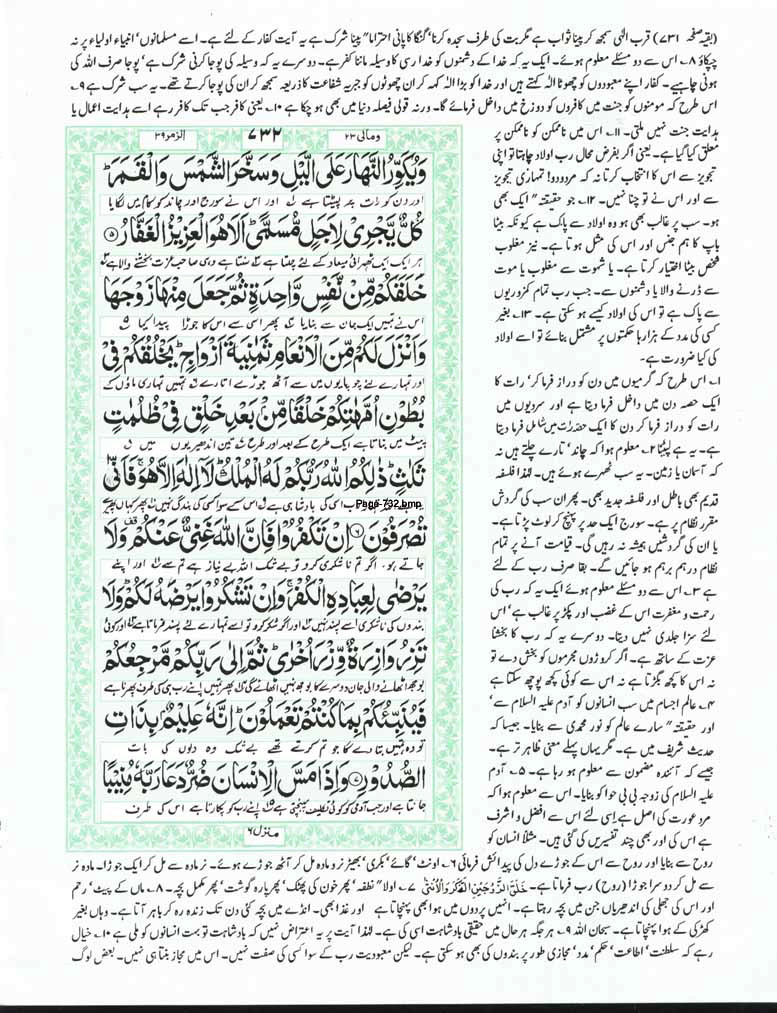 (بقیہ صفحہ ۷۳۱) قرب الٰہی سمجھ کر پینا ثواب ہے مگر بت کی طرف سجدہ کرنا' گنگا کا پانی احتراما" پینا شرک ہے یہ آیت کفار کے لئے ہے۔ اسے مسلمانوں' انبیاء اولیاء پر نہ
چپکاؤ ۸۔ اس سے دو مسئلے معلوم ہوئے۔ ایک یہ کہ خدا کے دشمنوں کو خدا رسی کا وسیلہ ماننا کفر ہے۔ دوسرے یہ کہ وسیلہ کی پوجا کرنی شرک ہے' پوجا صرف اللہ کی
ہونی چاہیے۔ کفار اپنے معبودوں کو چھوٹا الٰہ کہتے ہیں اور خدا کو بڑا الٰہ کہہ کر ان چھوٹوں کو جبریہ شفاعت کا ذریعہ سمجھ کر ان کی پوجا کرتے تھے۔ یہ سب شرک ہے ۹۔
اس طرح کہ مومنوں کو جنت میں کافروں کو دوزخ میں داخل فرمائے گا۔ ورنہ قولی فیصلہ دنیا میں بھی ہو چکا ہے ۱۰۔ یعنی کافر جب تک کافر رہے اسے ہدایت اعمال یا
ہدایت جنت نہیں ملتی۔ ۱۱۔ اس میں ناممکن کو ناممکن پر
معلق کیا گیا ہے۔ یعنی اگر بفرض محال رب اولاد چاہتا تو اپنی
تجویز سے اس کا انتخاب کرتا نہ کہ مردودو! تمہاری تجویز
سے اور اس نے تو چنا نہیں۔ ۱۲۔ جو حقیقتہ" ایک بھی
ہو۔ سب پر غالب بھی ہو وہ اولاد سے پاک ہے کیونکہ بیٹا
باپ کا ہم جنس اور اس کی مثل ہوتا ہے۔ نیز مغلوب
شخص بیٹا اختیار کرتا ہے۔ یا شہوت سے مغلوب یا موت
سے ڈرنے والا یا دشمنوں سے۔ جب رب تمام کمزوریوں
سے پاک ہے تو اس کی اولاد کیسے ہو سکتی ہے۔ ۱۳۔ بغیر
کسی کی مدد کے ہزارہا حکمتوں پر مشتمل بنائے تو اسے اولاد
کی کیا ضرورت ہے۔
۱۔ اس طرح کہ گرمیوں میں دن کو دراز فرما کر' رات کا
ایک حصہ دن میں داخل فرما دیتا ہے اور سردیوں میں
رات کو دراز فرما کر دن کا ایک حصہ رات میں شامل فرما دیتا
ہے۔ یہ ہے لپیٹنا ۲۔ معلوم ہوا کہ چاند' تارے چلتے ہیں نہ
کہ آسمان یا زمین۔ یہ سب ٹھہرے ہوئے ہیں۔ لہٰذا فلسفہ
قدیم بھی باطل اور فلسفہ جدید بھی۔ پھر ان سب کی گردش
مقرر نظام پر ہے۔ سورج ایک حد پر پہنچ کر لوٹ پڑتا ہے۔
یا ان کی گردشیں ہمیشہ نہ رہیں گی۔ قیامت آنے پر تمام
نظام درہم برہم ہو جائیں گے۔ بقا صرف رب کے لئے
ہے ۳۔ اس سے دو مسئلے معلوم ہوئے ایک یہ کہ رب کی
رحمت و مغفرت اس کے غضب اور پکڑ پر غالب ہے' اس
لئے سزا جلدی نہیں دیتا۔ دوسرے یہ کہ رب کا بخشنا
عزت کے ساتھ ہے۔ اگر کروڑوں مجرموں کو بخش دے تو
نہ اس کا کچھ بگڑتا ہے نہ اس سے کوئی کچھ پوچھ سکتا ہے
۴۔ عالم اجسام میں سب انسانوں کو آدم علیہ السلام سے'
اور حقیقتہ" سارے عالم کو نور محمدی سے بنایا۔ جیسا کہ
حدیث شریف میں ہے۔ مگر یہاں پہلے معنی ظاہر تر ہے۔
جیسے کہ آئندہ مضمون سے معلوم ہو رہا ہے۔ ۵۔ آدم
علیہ السلام کی زوجہ بی بی حوا کو بنایا۔ اس سے معلوم ہوا کہ
مرد عورت کی اصل ہے اسی لئے اس سے افضل و اشرف
ہے اس کی اور بھی چند تفسیریں کی گئی ہیں۔ مثلاً انسان کو
الزمر ۳۹
۷۳۲
ومالی ۲۳
وَيُكَوِّرُ النَّهَارَ عَلَى الَّيْلِ وَسَخَّرَ الشَّمْسَ وَالْقَمَرَ ؕ
اور دن کو رات پر لپیٹتا ہے ۱ اور اس نے سورج اور چاند کو کام میں لگایا
كُلٌّ يَّجْرِىْ لِاَجَلٍ مُّسَمًّى ؕ اَلَا هُوَ الْعَزِيْزُ الْغَفَّارُ ۵
ہر ایک ایک ٹھہرائی میعاد کے لئے چلتا ہے ۲ سنتا ہے وہی صاحب عزت بخشنے والا ہے ۳
خَلَقَكُمْ مِّنْ نَّفْسٍ وَّاحِدَةٍ ثُمَّ جَعَلَ مِنْهَا زَوْجَهَا
اس نے تمہیں ایک جان سے بنایا ۴ پھر اسی سے اس کا جوڑا پیدا کیا ۵
وَاَنْزَلَ لَكُمْ مِّنَ الْاَنْعَامِ ثَمٰنِيَةَ اَزْوَاجٍ ؕ يَخْلُقُكُمْ فِىْ
اور تمہارے لئے چوپایوں میں سے آٹھ جوڑے اتارے ۶ تمہیں تمہاری ماؤں کے
بُطُوْنِ اُمَّهٰتِكُمْ خَلْقًا مِّنْۢ بَعْدِ خَلْقٍ فِىْ ظُلُمٰتٍ
پیٹ میں بناتا ہے ایک طرح کے بعد اور طرح ۷ تین اندھیریوں میں ۸
ثَلٰثٍ ؕ ذٰلِكُمُ اللّٰهُ رَبُّكُمْ لَهُ الْمُلْكُ ؕ لَاۤ اِلٰهَ اِلَّا هُوَ ۚ فَاَنّٰى
اسی کی بادشاہی ہے ۹ اس کے سوا کسی کی بندگی نہیں ۱۰ پھر کہاں پھیرے
Page-732.bmp
تُصْرَفُوْنَ ۶ اِنْ تَكْفُرُوْا فَاِنَّ اللّٰهَ غَنِىٌّ عَنْكُمْ ۫ وَلَا
جاتے ہو۔ اگر تم ناشکری کرو تو بے شک اللہ بے نیاز ہے تم سے ۱۱ اور اپنے
يَرْضٰى لِعِبَادِهِ الْكُفْرَ ۚ وَاِنْ تَشْكُرُوْا يَرْضَهُ لَكُمْ ؕ وَلَا
بندوں کی ناشکری اسے پسند نہیں اور اگر شکر کرو تو اسے تمہارے لئے پسند فرماتا ہے اور کوئی
تَزِرُ وَازِرَةٌ وِّزْرَ اُخْرٰى ؕ ثُمَّ اِلٰى رَبِّكُمْ مَّرْجِعُكُمْ
بوجھ اٹھانے والی جان دوسرے کا بوجھ نہیں اٹھائے گی پھر تمہیں اپنے رب ہی کی طرف پھرنا ہے
فَيُنَبِّئُكُمْ بِمَا كُنْتُمْ تَعْمَلُوْنَ ؕ اِنَّهٗ عَلِيْمٌۢ بِذَاتِ
تو وہ تمہیں بتا دے گا جو تم کرتے تھے بے شک وہ دلوں کی بات
الصُّدُوْرِ ۷ وَاِذَا مَسَّ الْاِنْسَانَ ضُرٌّ دَعَا رَبَّهٗ مُنِيْبًا
جانتا ہے اور جب آدمی کو کوئی تکلیف پہنچتی ہے اپنے رب کو پکارتا ہے اسی کی طرف
منزل ۶
روح سے بنایا اور روح سے اس کے جوڑے دل کی پیدائش فرمائی ۶۔ اونٹ' گائے' بکری' بھیڑ نر و مادہ مل کر آٹھ جوڑے ہوئے۔ نر مادہ سے مل کر ایک جوڑا۔ مادہ نر
سے مل کر دوسرا جوڑا (روح) رب فرماتا ہے۔ خَلَقَ الزَّوْجَيْنِ الذَّكَرَ وَالْاُنْثٰى ۷۔ اولا" نطفہ' پھر خون کی پھٹک' پھر پارہ گوشت' پھر مکمل بچہ۔ ۸۔ ماں کے پیٹ' رحم
اور اس کی جھلی کی اندھیریاں جن میں بچہ رہتا ہے۔ انہیں پردوں میں ہوا بھی پہنچاتا ہے اور غذا بھی۔ انڈے میں بچہ کئی دن تک زندہ رہ کر باہر آتا ہے۔ وہاں بغیر
کھڑکی کے ہوا پہنچاتا ہے۔ سبحان اللہ ۹۔ ہر جگہ ہر حال میں حقیقی بادشاہت اسی کی ہے۔ لہٰذا آیت پر یہ اعتراض نہیں کہ بادشاہت تو بہت انسانوں کو ملی ہے ۱۰۔ خیال
رہے کہ سلطنت' اطاعت' حکم' مدد' مجازی طور پر بندوں کی بھی ہو سکتی ہے۔ لیکن معبودیت رب کے سوا کسی کی صفت نہیں۔ اس میں مجاز بنتا ہی نہیں۔ بعض لوگ